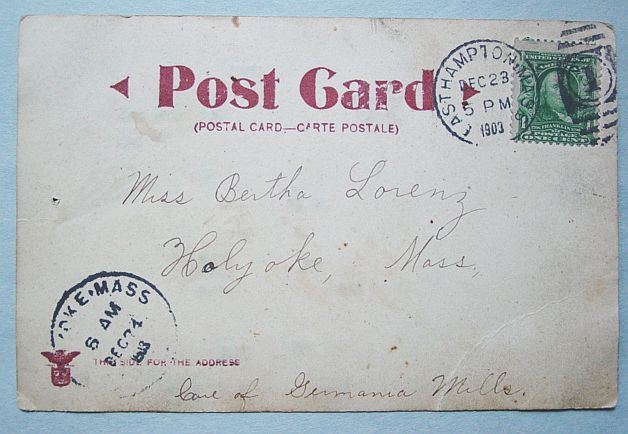 Post Card
(POSTAL CARD—CARTE POSTALE)
EASTHAMPTON, MASS.
DEC 23
5 PM
1903
UNITED STATES
FRANKLIN
POSTAGE
ONE CENT
Miss Bertha Lorenz
Holyoke, Mass,
OKE, MASS
6 AM
DEC 24
THIS SIDE FOR THE ADDRESS
Care of Germania Mills.